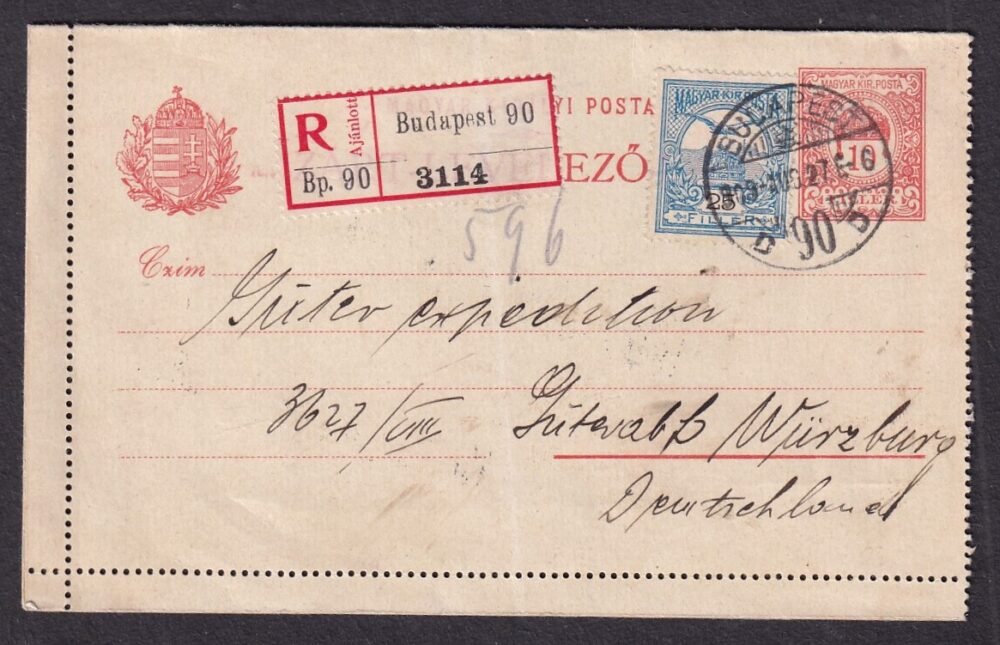 MAGYAR KIRÁLYI POSTA
ZÁRT LEVELEZŐ
R
Ajánlott
Budapest 90
Bp. 90
3114
596
MAGYAR KIR. POSTA
25
FILLÉR
MAGYAR KIR. POSTA
10
FILLÉR
BUDAPEST
90
Czim
Güter expedition
3627/VIII Güterabf Würzburg
Deutschland